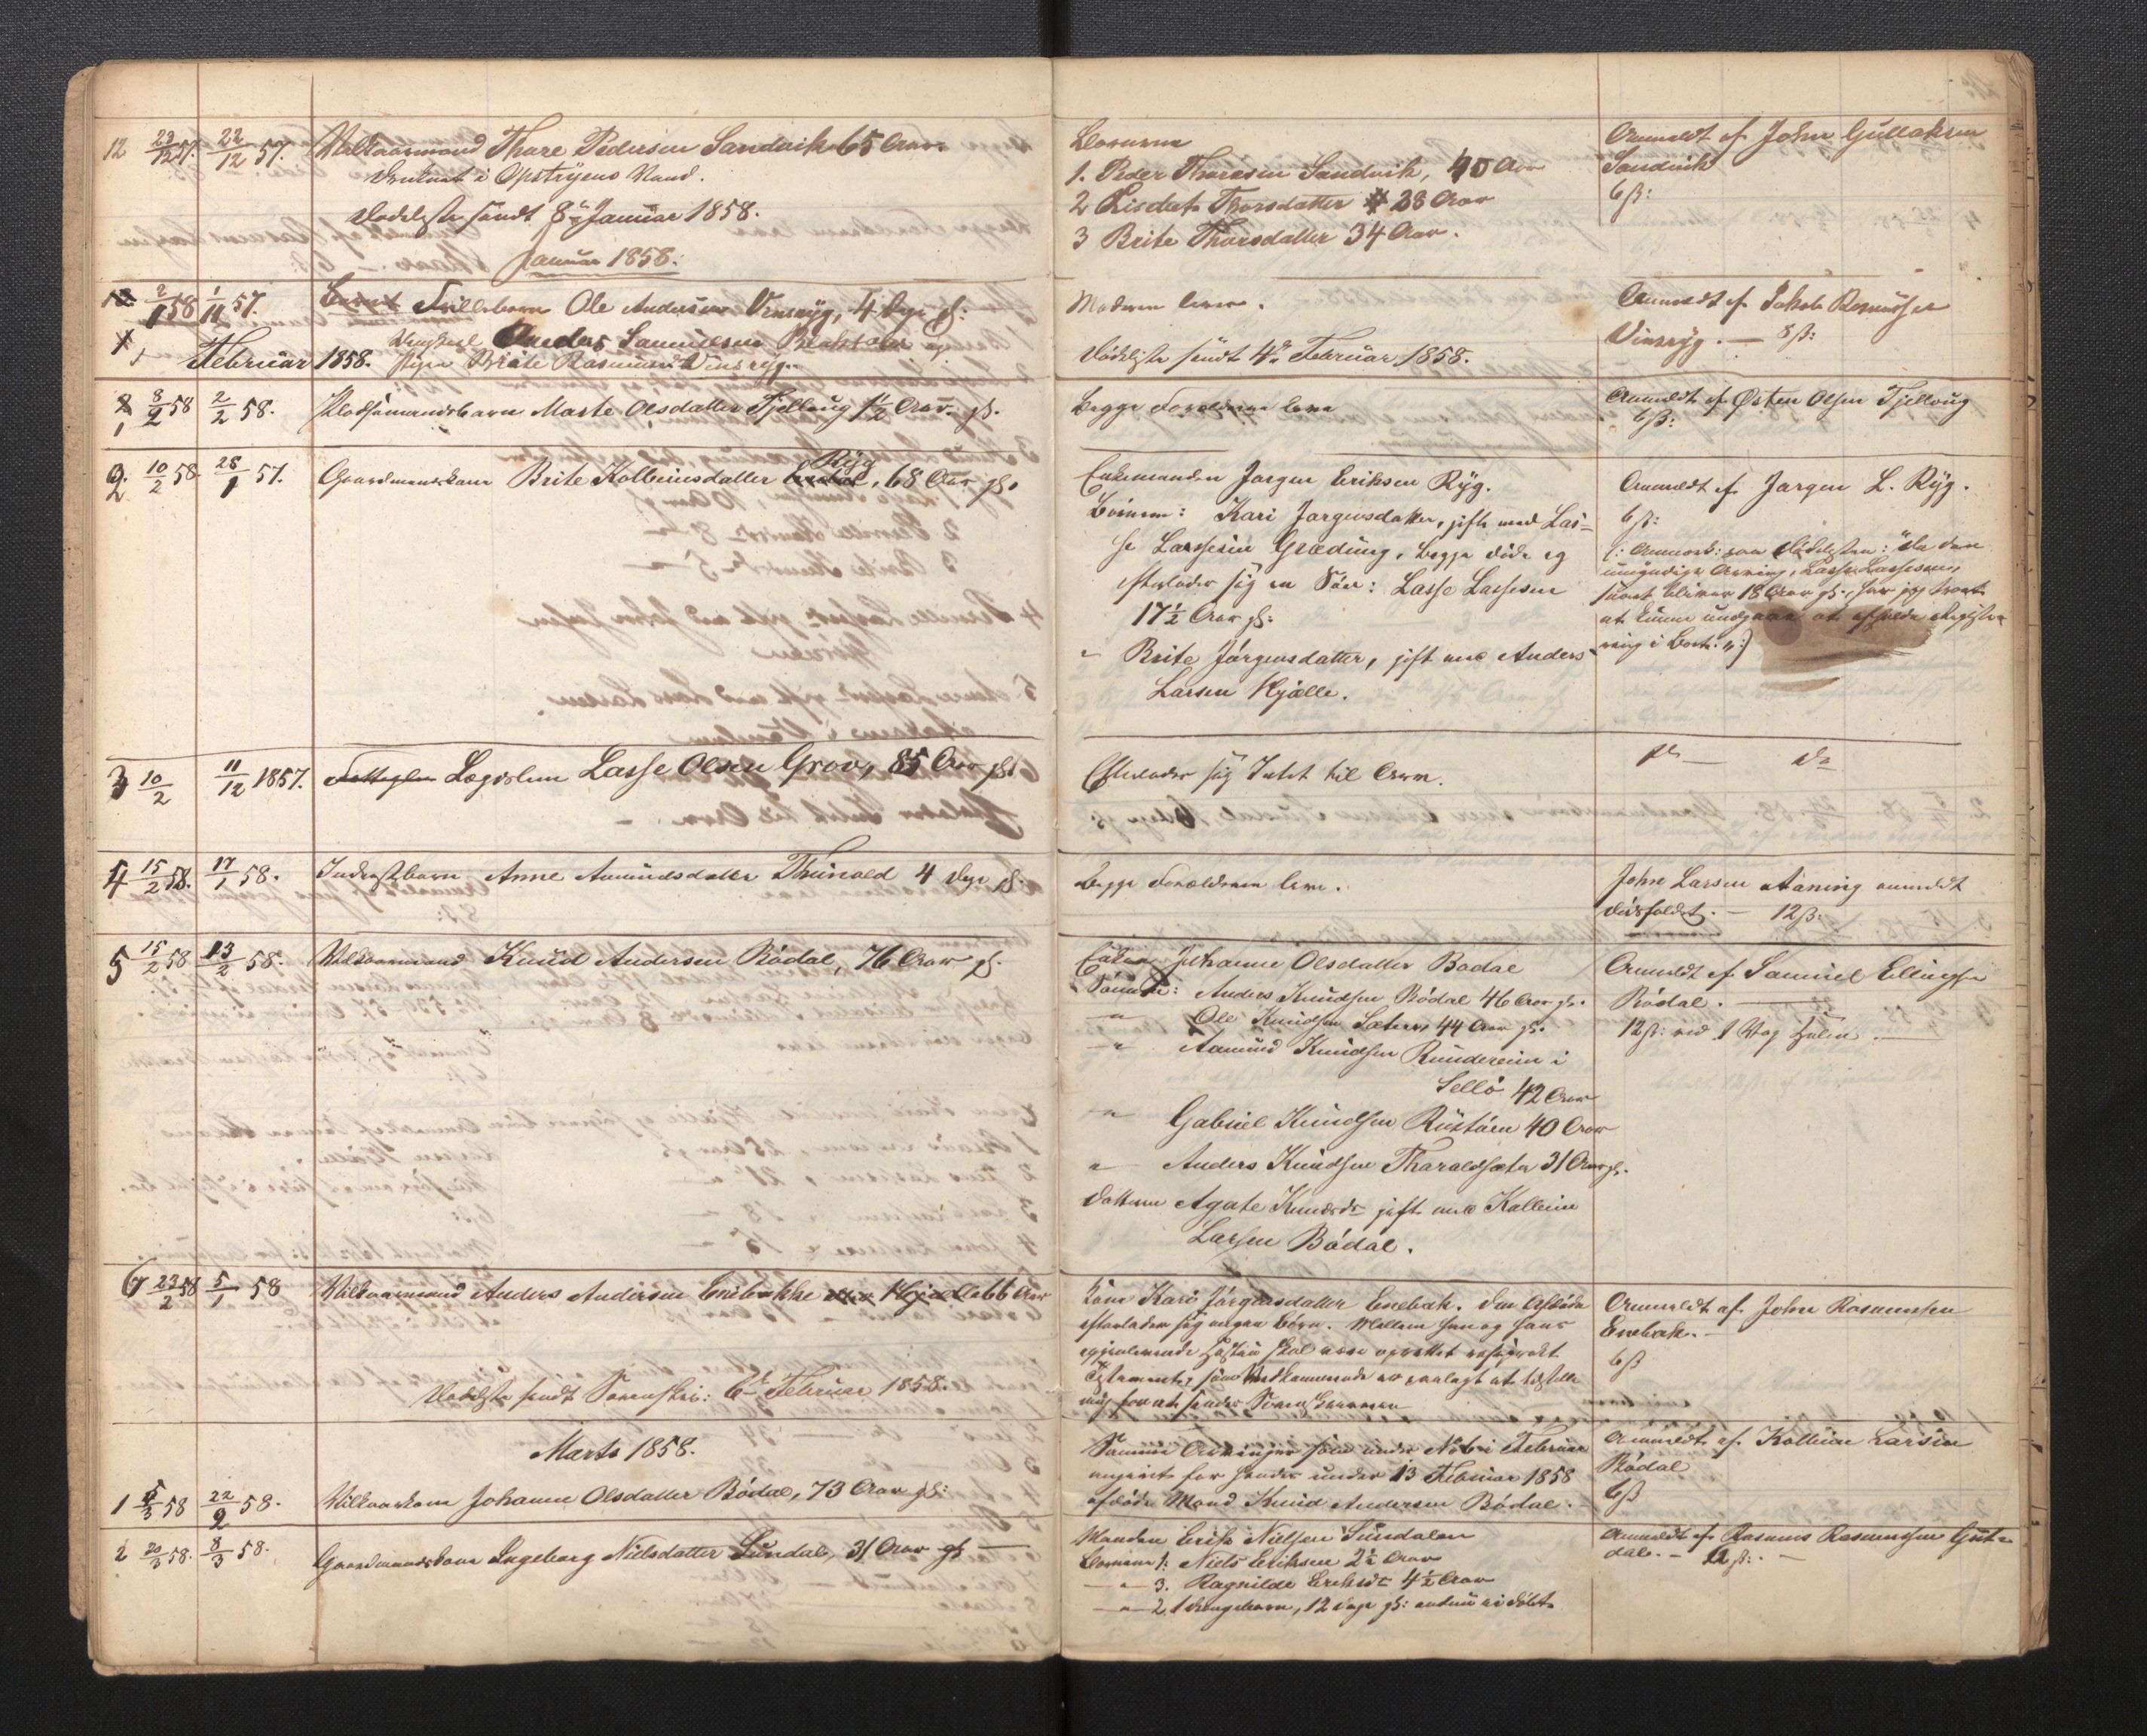 12 23/12 57. 22/12 57. Vilkaarmand Thore Pedersen Sandvik 65 Aar.
Druknet i Opstryens Vand.
Dødsliste sendt 8de Januar 1858.
Januar 1858.
2/1 58 1/11 57. Barnet Frillebarn Ole Andersen Vinsryg, 4 Dage gl:
Anders Samuelsen og
1 Februar 1858. Pigen Brite Rasmusd. Vinsryg.
1 8/2 58 2/2 58. Pladsmandsbarn Marte Olsdatter Tjellaug 1½ Aar gl.
2 10/2 58. 28/1 57. Gaardmandskone Brite Kolbeinsdatter Ryg, 68 Aar gl.
3 10/2 11/12 1857. Lægdslem Lasse Olsen Grov, 85 Aar gl.
4 15/2 58. 17/1 58. Inderstbarn Anne Amundsdatter Thunold 4 Dage gl.
5 15/2 58 13/2 58. Vilkaarmand Knud Andersen Bödal, 76 Aar gl.
6 23/2 58 5/1 58 Vilkaarmand Anders Andersen Enebakke 66 Aar
Dødsliste sendt Sorenskr: 6te Februar 1858.
Marts 1858.
1 5/3 58 22/2 58. Vilkaarskone Johanne Olsdatter Bödal, 73 Aar gl:
2 20/3 58. 8/3 58. Gaardmandskone Ingeborg Nielsdatter Sundal, 31 Aar gl
Børnene
1. Peder Thoresen Sandvik, 40 Aar
2 Lisbet Thorsdatter 38 Aar
3 Brite Thorsdatter 34 Aar.
Moderen lever.
Dødsliste sendt 4de Februar 1858.
Begge Forældrene leve
Enkemanden Jørgen Eriksen Ryg.
Børnene: Kari Jørgensdatter, gift med Las-
se Lassesen Grædung, begge døde og
efterlader sig en Søn: Lasse Lassesen
17½ Aar gl:
" Brite Jörgensdatter, gift med Anders
Larsen Hjelle.
Efterlader sig Intet til Arv.
Begge Forældrene leve.
Enken Johanne Olsdatter Bødal
Sönner: Anders Knudsen Bödal 46 Aar gl.
" Ole Knudsen Sæteren 44 Aar gl.
" Aamund Knudsen Rundereim i
Sellö 42 Aar
" Gabriel Knudsen Rustöen 40 Aar
" Anders Knudsen Tharaldsæter 31 Aar gl.
Datteren Agate Knudsdr gift med Kolbein
Larsen Bödal.
Kone Kari Jörgensdatter Enebak. Den Afdøde
efterlader sig ingen Børn. Mellem ham og hans
gjenlevende Hustru skal være oprettet
Testamente, som Vedkommende er paalagt at tilstille
mig for at sendes Sorenskriveren
Samme Arvinger som under No 5 i Februar
angivet for hendes under 13 Februar 1858
afdøde Mand Knud Andersen Bödal.
Manden Erik Nielsen Sundalen
Børnene 1: Niels Eriksen 2½ Aar
" 3. Ragnilde Eriksdr 4½ Aar
" 2. 1 Drengebarn, 12 Dage gl: endnu ei døbt.
Anmeldt af John Gullaksen
Sandvik
6ß:
Anmeldt af Jakob Rasmussen
Vinsryg. — 8ß:
Anmeldt af Østen Olsen Tjellaug
6ß:
Anmeldt af Jørgen E. Ryg.
6ß:
(: Anmærk: paa Dødslisten: "Da den
umyndige Arving, Lasse Lassesen,
snart bliver 18 Aar gl., har jeg troet
at kunne undgaae at afholde Registre-
ring i Boet. ":)
do — do
John Larsen Aaning anmeldt
Dødsfaldet. — 12ß:
Anmeldt af Samuel Ellingsen
Bödal.
12ß:
Anmeldt af John Rasmussen
Enebak.
6ß
Anmeldt af Kolbein Larsen
Bödal
6ß
Anmeldt af Rasmus Rasmussen Gut-
dal. — 12 ß: